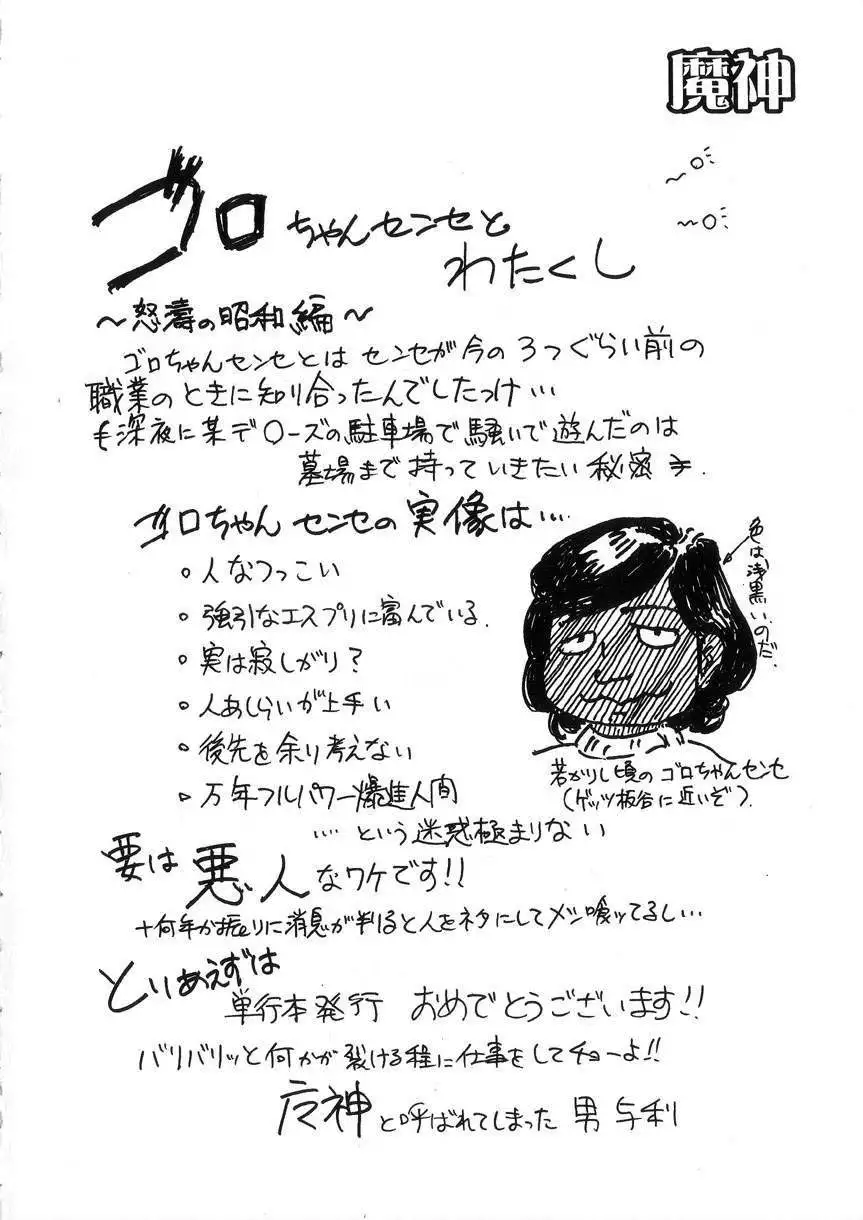 魔神
ゴロちゃんセンセと
わたくし
〜怒濤の昭和編〜
ゴロちゃんセンセとは センセが今の3つぐらい前の
職業のときに知り合ったんでしたっけ…
深夜に某デ〇ーズの駐車場で騒いで遊んだのは
墓場まで持っていきたい秘密
ゴロちゃんセンセの実像は…
○人なつっこい
○強引なエスプリに富んでいる.
○実は寂しがり?
○人あしらいが上手い
○後先を余り考えない
○万年フルパワー爆進人間
…という迷惑極まりない
色は浅黒いのだ.
若かりし頃のゴロちゃんセンセ
(ゲッツ板谷に近いぞ).
要は悪人なワケです!!
十何年か振りに消息が判ると人をネタにしてメシ喰ッてるし…
とりあえずは
単行本発行 おめでとうございます!!
バリバリッと何かが裂ける程に仕事をしてチョーよ!!
神と呼ばれてしまった 男 与利